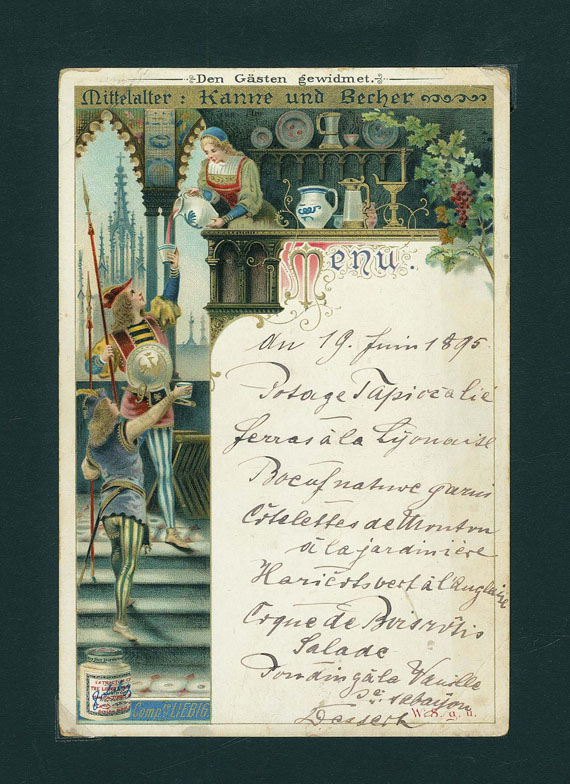 Den Gästen gewidmet.
Mittelalter: Kanne und Becher
Menu.
du 19. Juin 1895.
Potage Tapioca lié
ferras à la Lyonaise
Boeuf nature garni
Côtelettes de Mouton
à la jardinière
Haricots vert à l'anglaise
Coque de Bois rôtis
Salade
Pouding à la Vanille
sabayon
Dessert
W. S. g. u.
EXTRACTUM
Compie LIEBIG